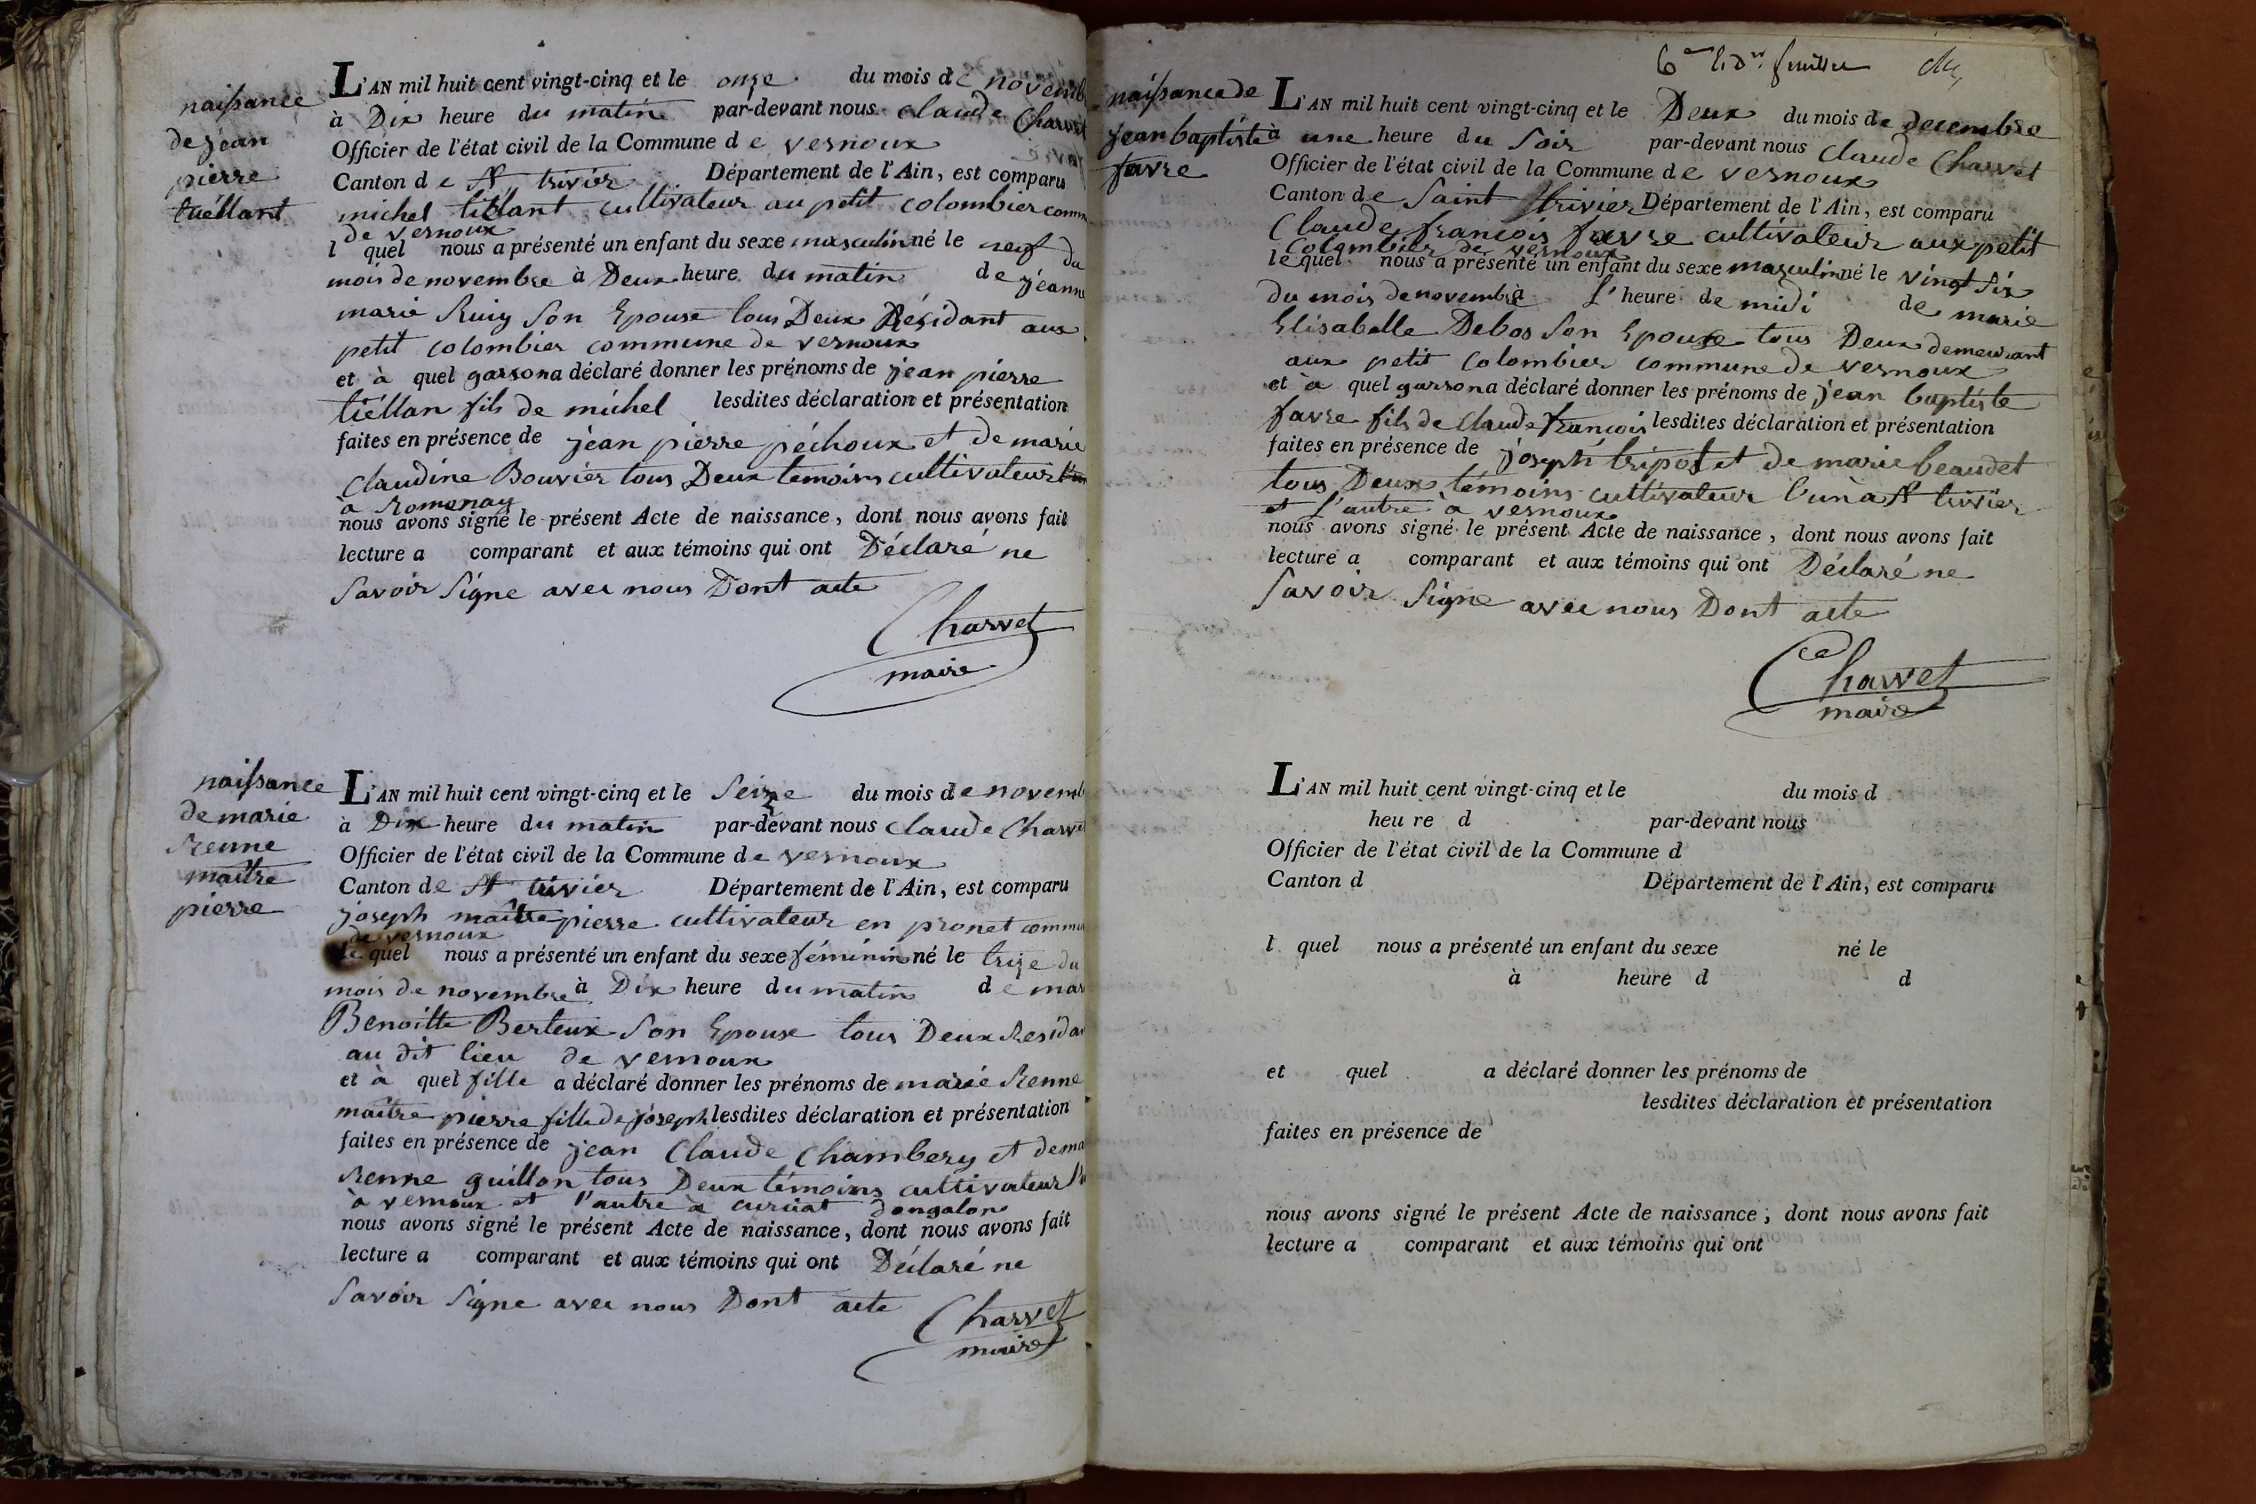 naissance
de jéan
pierre
tiéllant
L'AN mil huit cent vingt-cinq et le onze du mois de novemb
à Dix heure du matin par-devant nous claude Charvet
Officier de l'état civil de la Commune de vernoux
Canton de St trivier Département de l'Ain, est comparu
michel tiéllant cultivateur au petit colombier comm
de vernoux
l quel nous a présenté un enfant du sexe masculin né le neuf du
mois de novembre à Deux heure du matin de jéanne
marie son Epouse tous Deux Résidant aux
petit colombier commune de vernoux
et à quel garson a déclaré donner les prénoms de jéan pierre
tiéllan fils de michel lesdites déclaration et présentation
faites en présence de jéan pierre péchoux et de marie
claudine Bouvier tous Deux temoins cultivateur
à Romenay
nous avons signé le présent Acte de naissance, dont nous avons fait
lecture a comparant et aux témoins qui ont Déclaré ne
Savoir Signe avec nous Dont acte
Charvet
maire
naissance
de marie
Renne
maître
pierre
L'AN mil huit cent vingt-cinq et le Seize du mois de novemb
à Dix heure du matin par-devant nous claude Charvet
Officier de l'état civil de la Commune de vernoux
Canton de St trivier Département de l'Ain, est comparu
joseph maître pierre cultivateur en pronet commu
de vernoux
le quel nous a présenté un enfant du sexe féminin né le trize du
mois de novembre à Dix heure du matin de mar
Benoitte Berteux Son Epouse tous Deux Resida
au dit lieu de vernoux
et à quel fille a déclaré donner les prénoms de marie Renne
maître pierre fille de joseph lesdites déclaration et présentation
faites en présence de jéan Claude Chambery et de ma
Renne guillon tous Deux témoins cultivateur l'u
à vernoux et l'autre à curciat dongalon
nous avons signé le présent Acte de naissance, dont nous avons fait
lecture a comparant et aux témoins qui ont Déclaré ne
Savoir Signe avec nous Dont acte
Charvet
maire
6me et dr feuillet
naissance de
jean baptiste
favre
L'AN mil huit cent vingt-cinq et le Deux du mois de decembre
à une heure du Soir par-devant nous claude Charvet
Officier de l'état civil de la Commune de vernoux
Canton de Saint trivier Département de l'Ain, est comparu
Claude francois favre cultivateur aux petit
Colombier de vernoux
le quel nous a présenté un enfant du sexe masculin né le vingt Six
du mois de novembre à l'heure de midi de marie
Elisabette Debos Son Epouse tous Deux demeurant
aux petit Colombier commune de vernoux
et à quel garson a déclaré donner les prénoms de jéan baptiste
favre fils de Claude francois lesdites déclaration et présentation
faites en présence de joseph tripot et de marie beaudet
tous Deux témoins cultivateur l'un à St trivier
et l'autre à vernoux
nous avons signé le présent Acte de naissance, dont nous avons fait
lecture a comparant et aux témoins qui ont Déclaré ne
Savoir Signe avec nous Dont acte
Charvet
maire
L'AN mil huit cent vingt-cinq et le du mois d
heu re d par-devant nous
Officier de l'état civil de la Commune d
Canton d Département de l'Ain, est comparu
l quel nous a présenté un enfant du sexe né le
à heure d d
et quel a déclaré donner les prénoms de
lesdites déclaration et présentation
faites en présence de
nous avons signé le présent Acte de naissance, dont nous avons fait
lecture a comparant et aux témoins qui ont